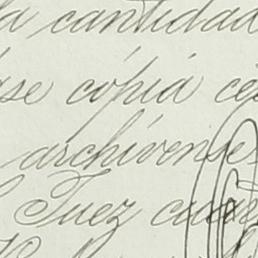 la cantidad
se cópia ce
archívense
Juez